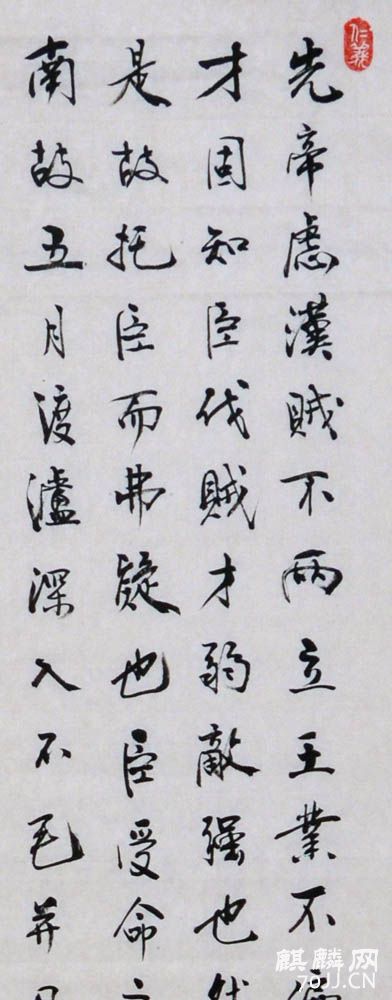 先帝慮漢賊不兩立王業不
才固知臣伐賊才弱敵強也然
是故托臣而弗疑也臣受命之
南故五月渡瀘深入不毛并日
仁義
麒麟网
70JJ.CN